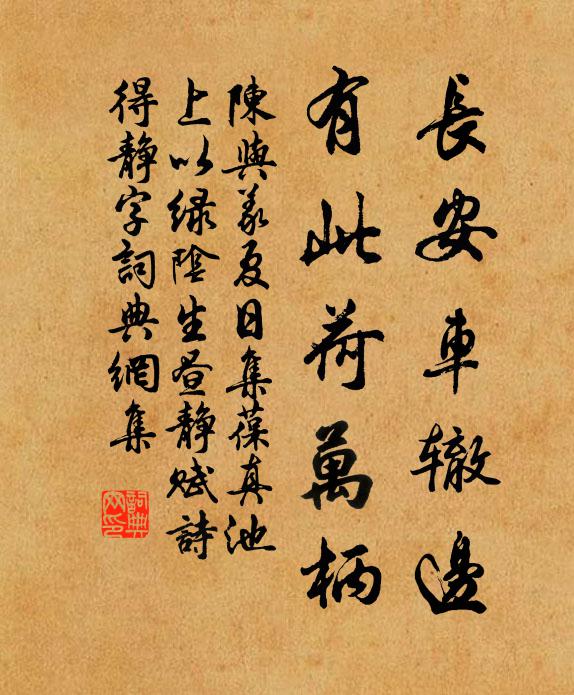 長安車辙邊
有此荷萬柄
陳與義夏日集葆真池
上以緑陰生昼靜賦詩
得靜字詞典網集
詞典網印